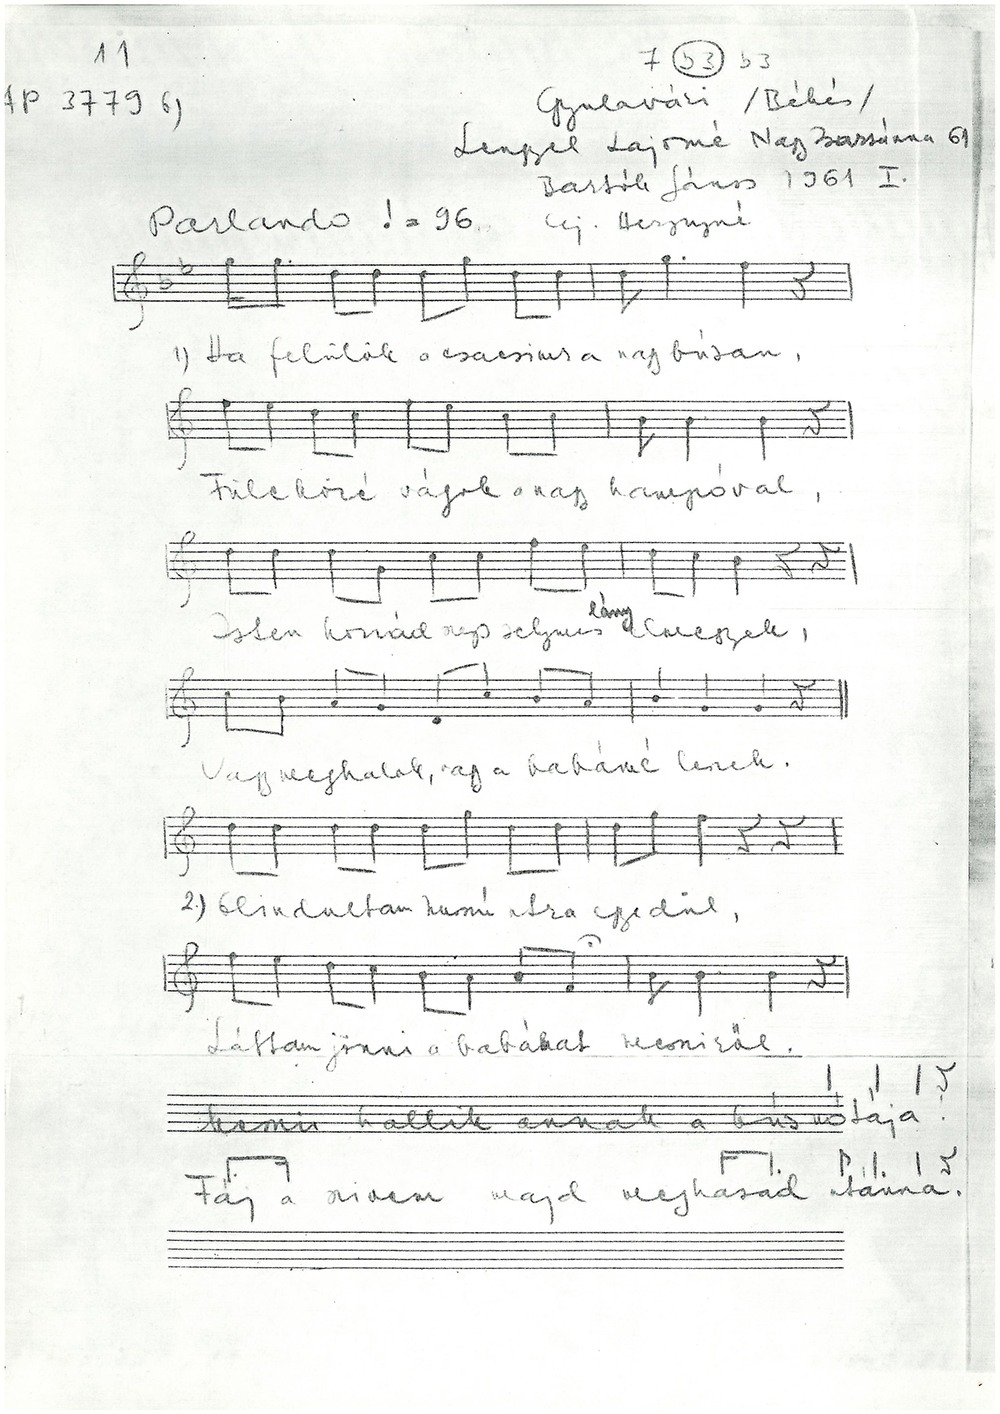 11
7 b3 b3
AP 3779 b)
Gyulavári /Békés/
Lengyel Lajosné Nagy Zsuzsánna 61
Bartók János 1961 I.
Parlando ♩ = 96 lej. Hegyiné
1) Ha felülök a csacsimra nagy búsan,
Füle közé vágok a nagy kampóval,
Isten hozzád nagy selymes lány elmegyek,
Vagy meghalok, vagy a babámé leszek.
2.) Elindultam hosszú útra egyedül,
Láttam jönni a babámat messziről.
messzi hallik annak a bús nótája
Fáj a szívem majd meghasad utánna.